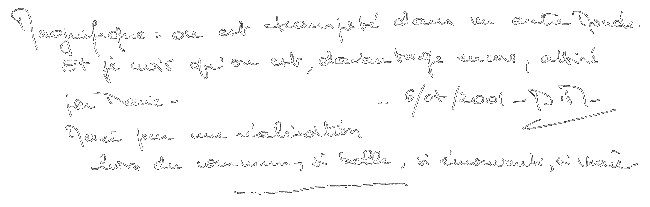 Magnifique : on est transporté dans un autre Monde.
Et je crois qu'on est, davantage encore, attiré
par Marie - .. 6/04/2001 -
Merci pour une réalisation
hors du commun, si belle, si émouvante, si vraie.